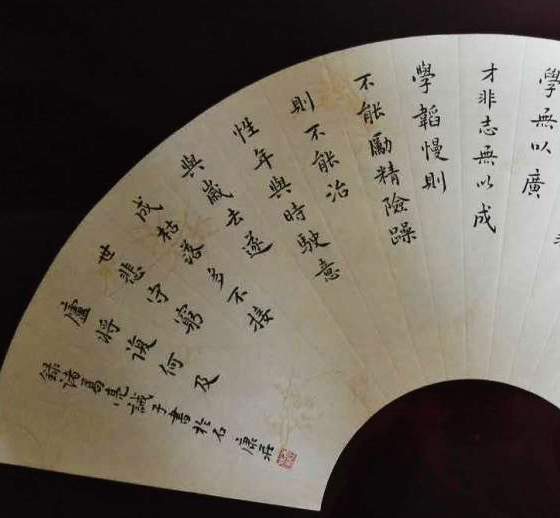 學無以廣
才非志無以成
學韜慢則
不能勵精險躁
則不能治
性年與時駛意
與歲去遂
成枯落多不接
世悲守窮
廬將復何及
錄諸葛亮誡子書於石康莊